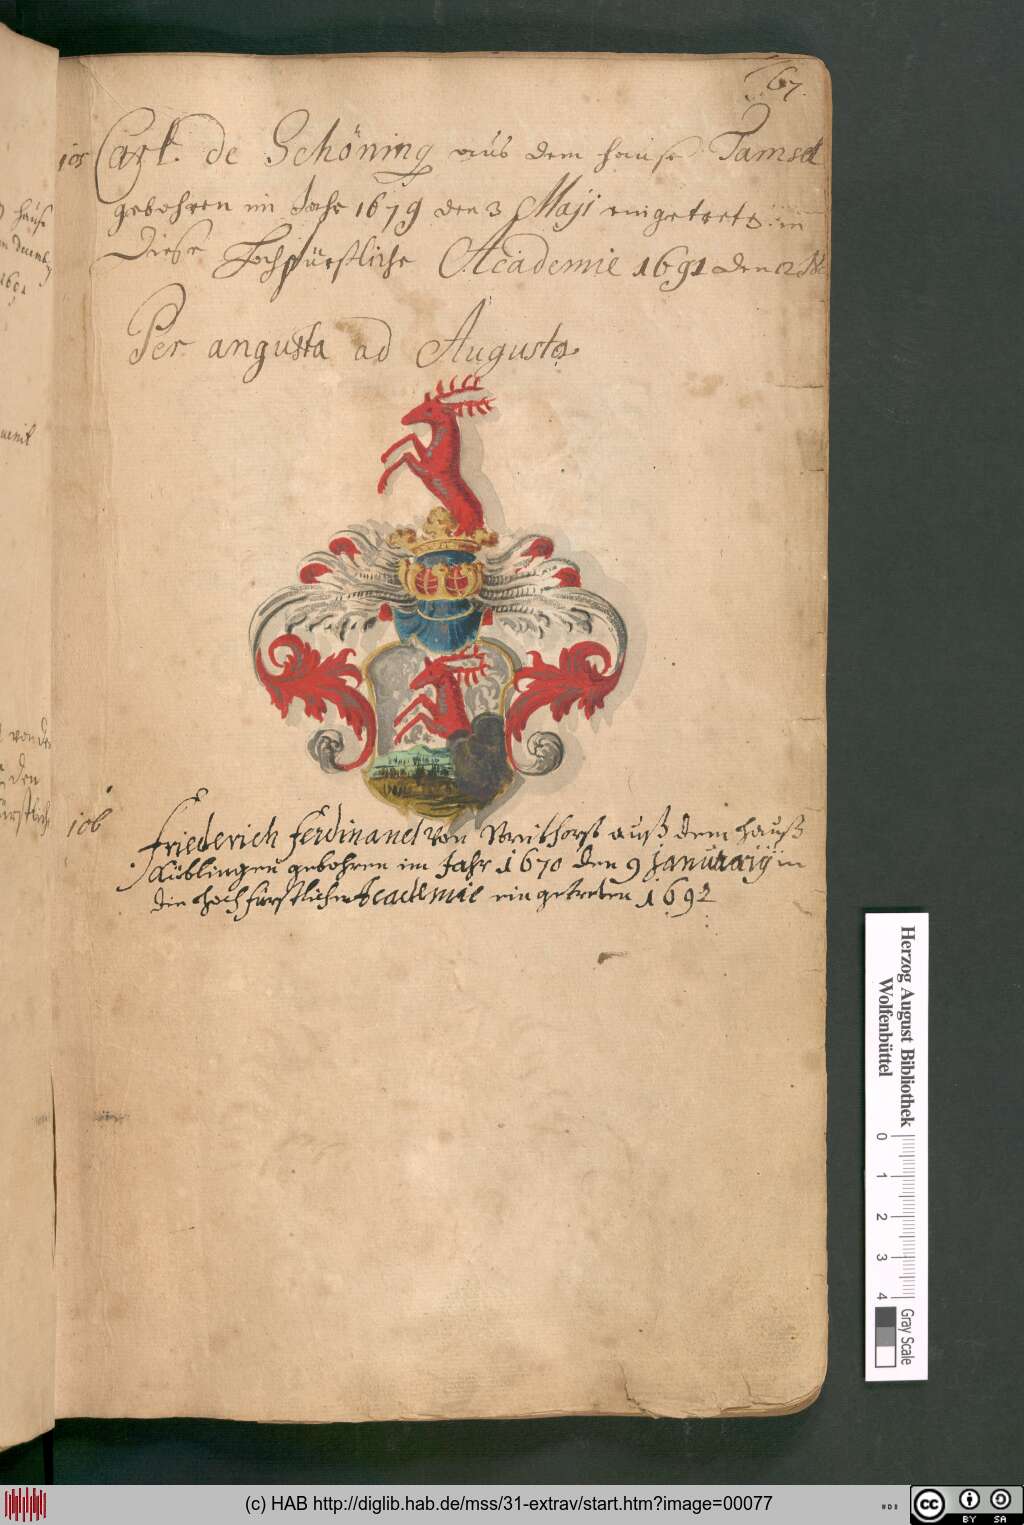 67.
105 Carl de Schöning aus dem hause Tamsel
gebohren im Jahr 1679 den 3 Maji eingetreten in
Diese Hochfürstliche Academie 1691 den 2
Per angusta ad Augusta
106
Friederich Ferdinand von auß dem hauß
Küblingen gebohren im Jahr 1670 den 9 Januarij in
die hochfürstliche Academie eingetreten 1692
Herzog August Bibliothek
Wolfenbüttel
0 1 2 3 4
Gray Scale
(c) HAB http://diglib.hab.de/mss/31-extrav/start.htm?image=00077
cc BY SA